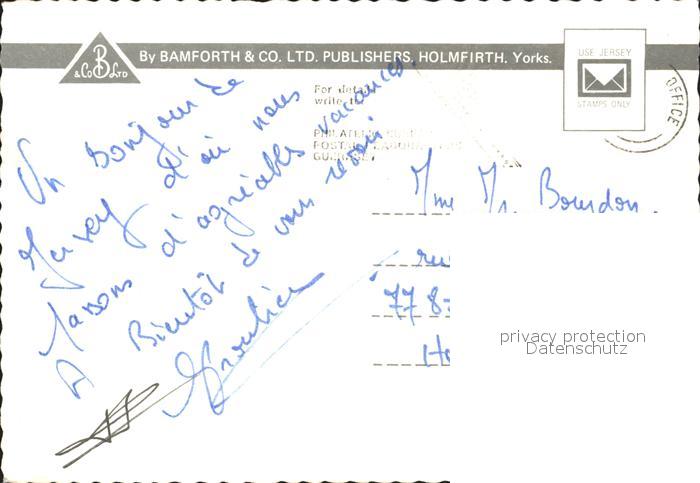 B
& Co Ltd
By BAMFORTH & CO. LTD. PUBLISHERS, HOLMFIRTH. Yorks.
USE JERSEY
STAMPS ONLY
OFFICE
For details
write to
POSTAL
Un bonjour de
Jersey d'où nous
faisons d'agréables vacances.
A Bientôt de vous revoir
Mme Mr. Bourdon.
77 8
privacy protection
Datenschutz